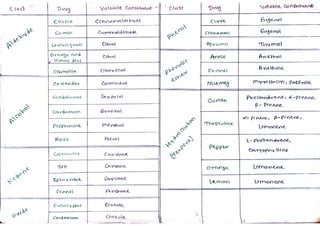 Class Drug Volatile Constituent
Aldehyde
Cassia Cinnamaldehyde
Cumin Cuminaldehyde
Lemongrass Citral
Orange and lemon peel Citral
Citronella Citronellal
Alcohol
Coriander
Sandalwood Santalol
Cardamom Borneol
Peppermint Menthol
Rose
Ketone
Caraway Carvone
Dill Carvone
Spearmint Carvone
Fennel Fenchone
Oxide
Eucalyptus Cineole
Cardamom Cineole
Class Drug Volatile Constituent
Phenol
Clove Eugenol
Cinnamon Eugenol
Ajowan Thymol
Phenolic ester
Anise Anethol
Fennel Anethole
Nutmeg Myristicin, Safrole
Hydrocarbon (terpene)
Cumin Phellandrene, α-pinene,
β-Pinene
Turpentine α-pinene, β-Pinene,
Limonene
Pepper L-phellandrene,
Caryophyllene
Orange Limonene
Lemon Limonene